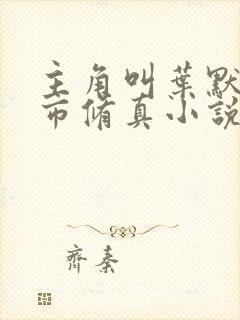 主角叫葉默
市脩真小說
齊秦